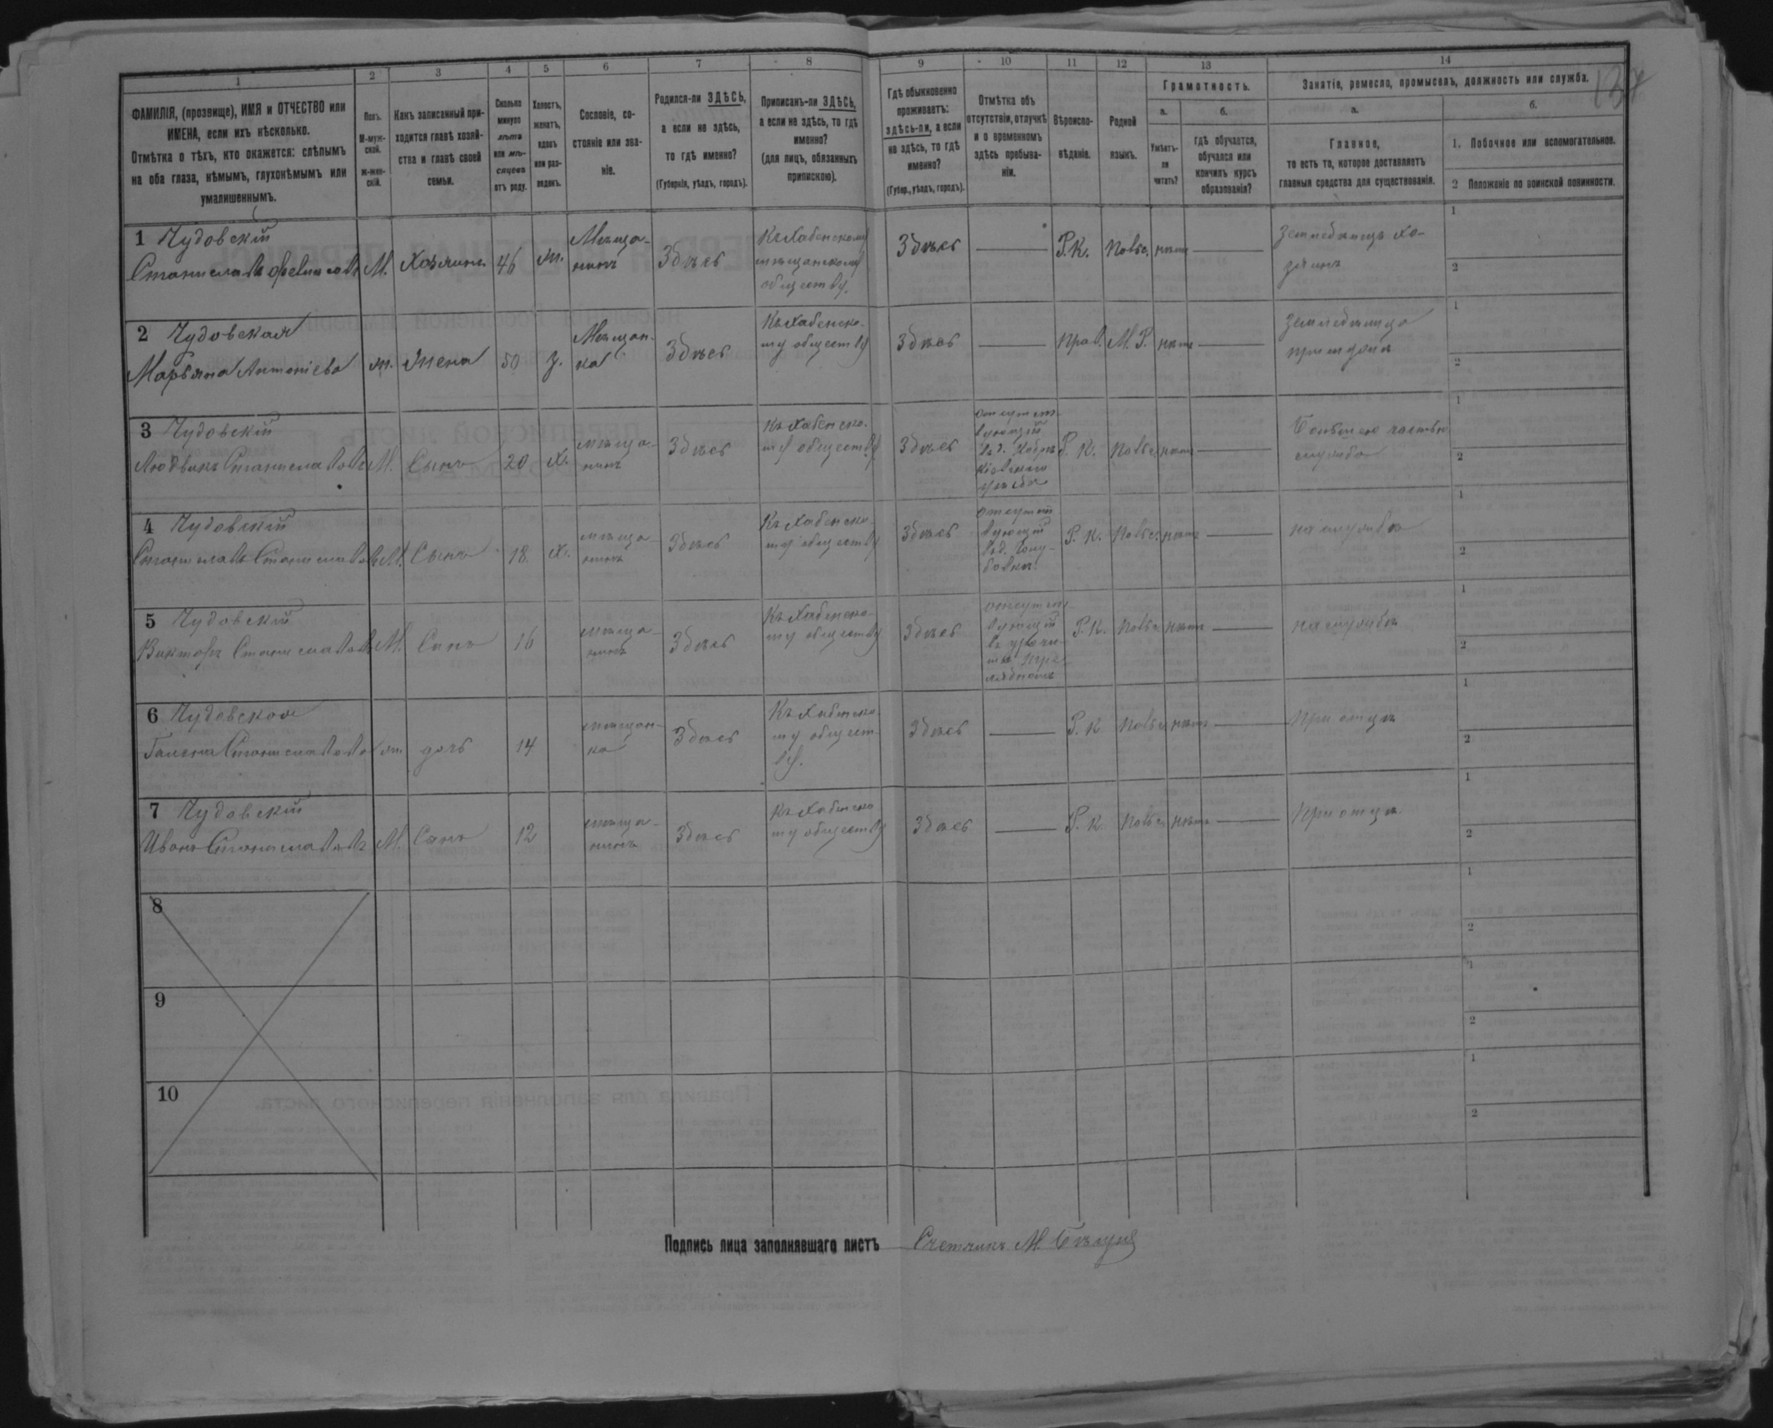 1
2
3
4
5
6
7
8
9
10
11
12
13
14
ФАМИЛІЯ, (прозвище), ИМЯ и ОТЧЕСТВО или
ИМЕНА, если ихъ нѣсколько.
Отмѣтка о тѣхъ, кто окажется: слѣпымъ
на оба глаза, нѣмымъ, глухонѣмымъ или
умалишеннымъ.
Полъ.
М-муж-
ской.
ж-жен-
скій.
Какъ записанный при-
ходится главѣ хозяй-
ства и главѣ своей
семьи.
Сколько
минуло
лѣтъ
или мѣ-
сяцевъ
отъ роду.
Холостъ,
женатъ,
вдовъ
или раз-
веденъ.
Сословіе, со-
стояніе или зва-
ніе.
Родился-ли ЗДѢСЬ,
а если не здѣсь,
то гдѣ именно?
(Губернія, уѣздъ, городъ).
Приписанъ-ли ЗДѢСЬ,
а если не здѣсь, то гдѣ
именно?
(для лицъ, обязанныхъ
припискою).
Гдѣ обыкновенно
проживаетъ:
здѣсь-ли, а если
не здѣсь, то гдѣ
именно?
(Губер., уѣздъ, городъ).
Отмѣтка объ
отсутствіи, отлучкѣ
и о временномъ
здѣсь пребыва-
ніи.
Вѣроиспо-
вѣданіе.
Родной
языкъ.
Грамотность.
а.
Умѣетъ-
ли
читать?
б.
гдѣ обучается,
обучался или
кончилъ курсъ
образованія?
Занятіе, ремесло, промыселъ, должность или служба.
а.
Главное,
то есть то, которое доставляетъ
главныя средства для существованія.
б.
1. Побочное или вспомогательное.
2 Положеніе по воинской повинности.
1 Чудовскій
Станиславъ М. Хозяинъ 46 ж. Мѣща-
нинъ Здѣсь Къ Хабенскому
мѣщанскому
обществу. Здѣсь Р.К. Польс. нѣтъ Земледѣлецъ хо-
зяинъ
1
2
2 Чудовская
Марьяна Антоніева ж. Жена 50 з. Мѣщан-
ка Здѣсь Къ Хабенско-
му обществу Здѣсь Прав. М.Р. нѣтъ
1
2
3 Чудовскій
Людвикъ Станиславовъ М. Сынъ 20 х. мѣща-
нинъ Здѣсь Къ Хабенско-
му обществу Здѣсь отсутст-
вующій Р.К. Польс. нѣтъ
1
2
4 Чудовскій
Станиславъ Станиславовъ М. Сынъ 18 х. мѣща-
нинъ Здѣсь Къ Хабенско-
му обществу Здѣсь отсутст-
вующій Р.К. Польс. нѣтъ на службѣ
1
2
5 Чудовскій
Викторъ Станиславовъ М. Сынъ 16 мѣща-
нинъ Здѣсь Къ Хабенско-
му обществу Здѣсь отсутст-
вующій Р.К. Польс. нѣтъ на службѣ
1
2
6 Чудовская
Станиславова ж. дочь 14 мѣщан-
ка Здѣсь Къ Хабенско-
му общест-
ву. Здѣсь Р.К Польс. нѣтъ При отцѣ
1
2
7 Чудовскій
Иванъ Станиславовъ М. Сынъ 12 мѣща-
нинъ Здѣсь Къ Хабенско-
му обществу Здѣсь Р.К Польс. нѣтъ При отцѣ
1
2
8
1
2
9
1
2
10
1
2
Подпись лица заполнявшаго листъ Счетчикъ М.